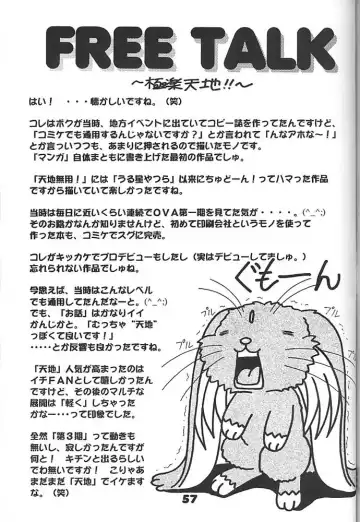 FREE TALK
～極楽天地!!～
はい！ ・・・懐かしいですね。（笑）
コレはボクが当時、地方イベントに出ていてコピー誌を作ってたんですけど、
「コミケでも通用するんじゃないですか？」とか言われて「んなアホな～！」
とか言いつつも、あまりに押されるので描いたモノです。
「マンガ」自体まともに書き上げた最初の作品でしゅ。
「天地無用！」には「うる星やつら」以来にちゅどーん！ってハマった作品
ですから描いていて楽しかったですね。
当時は毎日に近いくらい連続でOVA第一期を見てた気が・・・・。(^_^;)
そのお陰かなんか知りませんけど、初めて印刷会社というモノを使って
作った本も、コミケでスグに完売。
コレがキッカケでプロデビューもしたし（実はデビューしてます；）
忘れられない作品でしゅね。
今思えば、当時はこんなレベル
でも通用してたんだなーと。(^_^;)
でも、『お話』はかなりイイ
かんじかと。「むっちゃ“天地”
っぽくて良いです！」
・・・・・とか反響も良かったですね。
「天地」人気が高まったのは
イチFANとして嬉しかったん
ですけど、その後のマルチな
展開は「軽く」しちゃった
かな－って印象でした。
全然「第３期」って動きも
無いし、寂しかったんですが
何と！ キチンと出るらしい
でわ無いですが！ こりゃあ
まだまだ「天地」でイケます
な。（笑）
ぐもーん
57